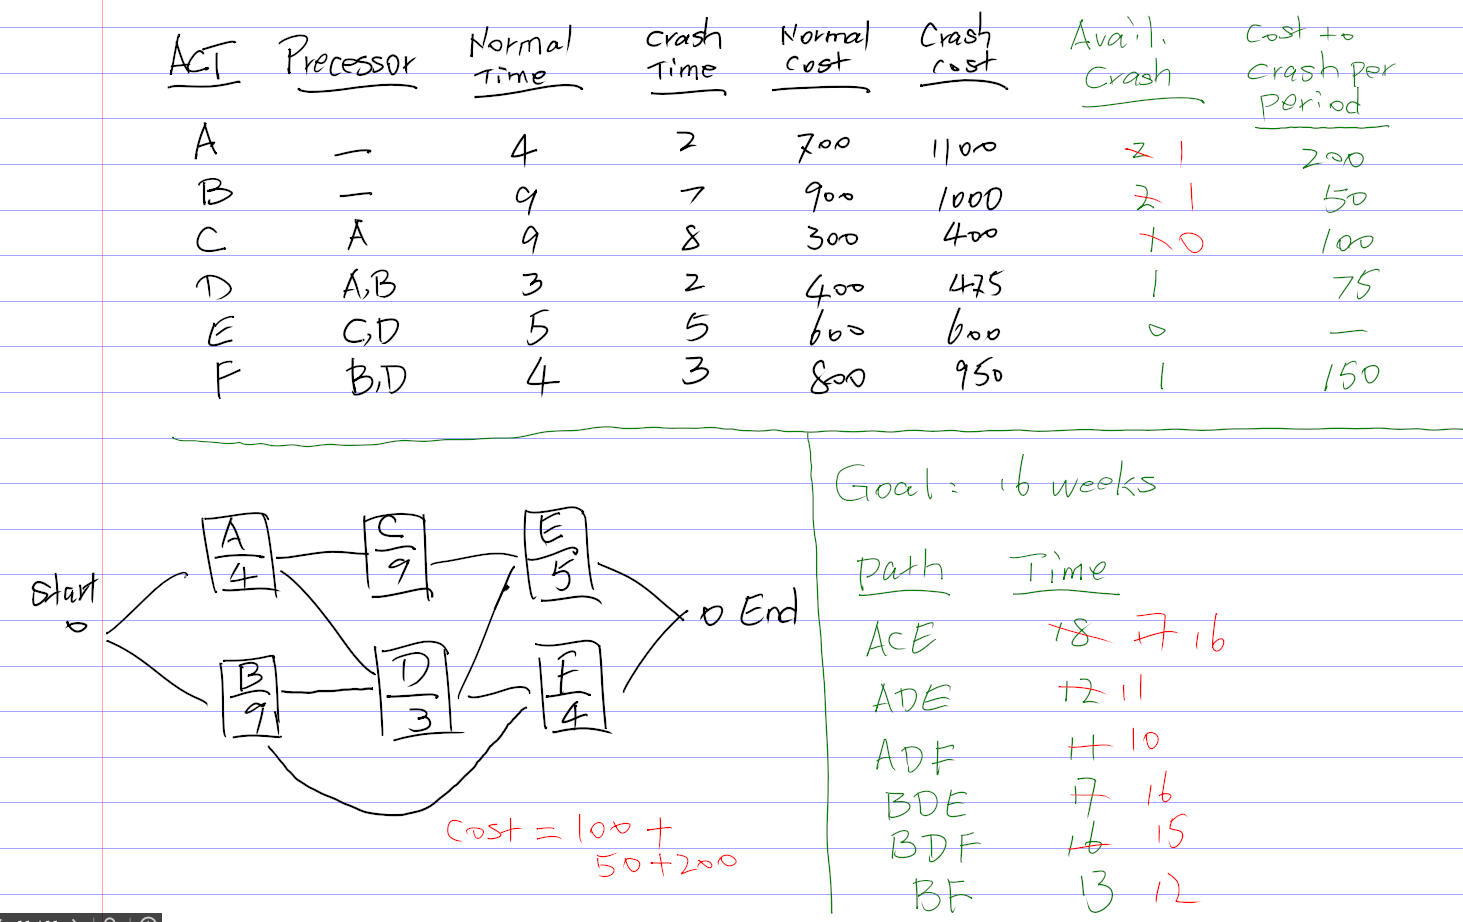 ACT Precessor Normal Time Crash Time Normal Cost Crash Cost Avail. Crash Cost to Crash per Period
A — 4 2 700 1100 2 1 200
B — 9 7 900 1000 2 1 50
C A 9 8 300 400 1 0 100
D A,B 3 2 400 475 1 75
E C,D 5 5 600 600 0 —
F B,D 4 3 800 950 1 150
Goal: 16 weeks
Start
A 4
C 9
E 5
B 9
D 3
F 4
End
Cost = 100 +
50+200
Path Time
ACE 18 17 16
ADE 12 11
ADF 11 10
BDE 17 16
BDF 16 15
BF 13 12